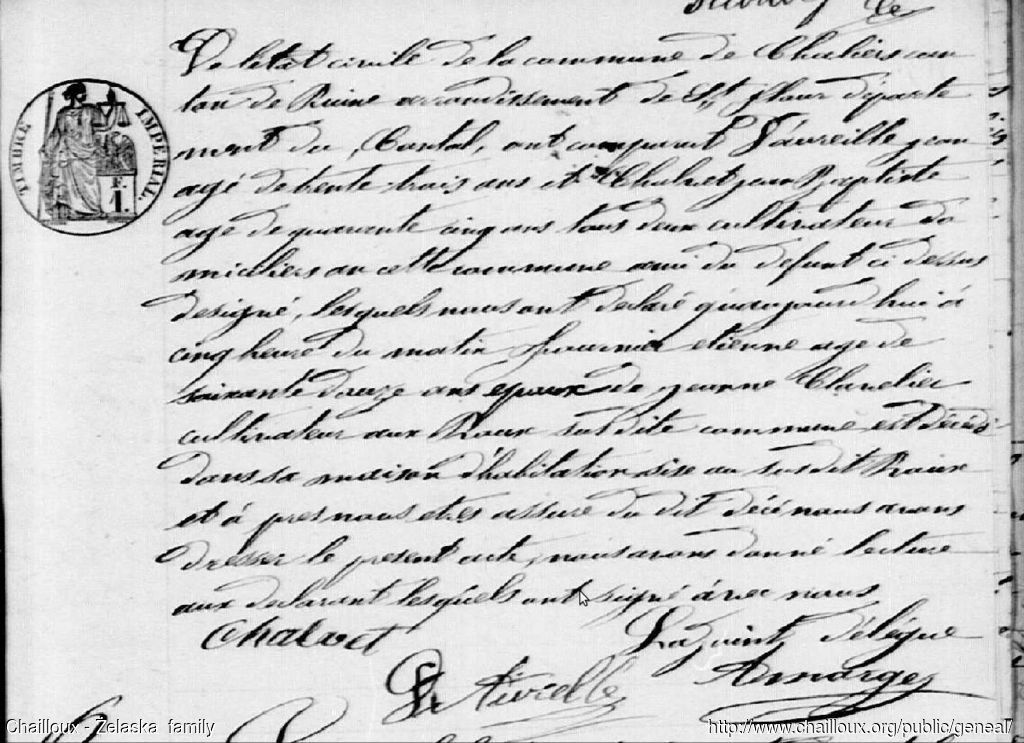 De l'etat civile de la commune de Chaliers can
ton de Ruine arrondissement de St flour départe
ment du Cantal, ont comparut jean
TIMBRE IMPERIAL.
F.
1.
agé de trente trois ans et Chalvet jean Baptiste
agé de quarante cinq ans tous deux cultivateur do
miciliers au cette commune ami du defunt ci dessus
designé, lesquels nous ont declaré qu'aujourd'hui à
cinq heure du matin fournier etienne age de
soixante douze ans epoux de jeanne
cultivateur aux Roux susdite commune est décédé
dans sa maison d'habitation sise au susdit Roux
et à pres nous etres assuré du dit décé nous avons
dresser le present acte, nous avons donné lecture
aux declarant lesquels ont signé àvec nous
Chalvet
L'adjoint délégue
Chailloux - Zelaska family
http://www.chailloux.org/public/geneal/